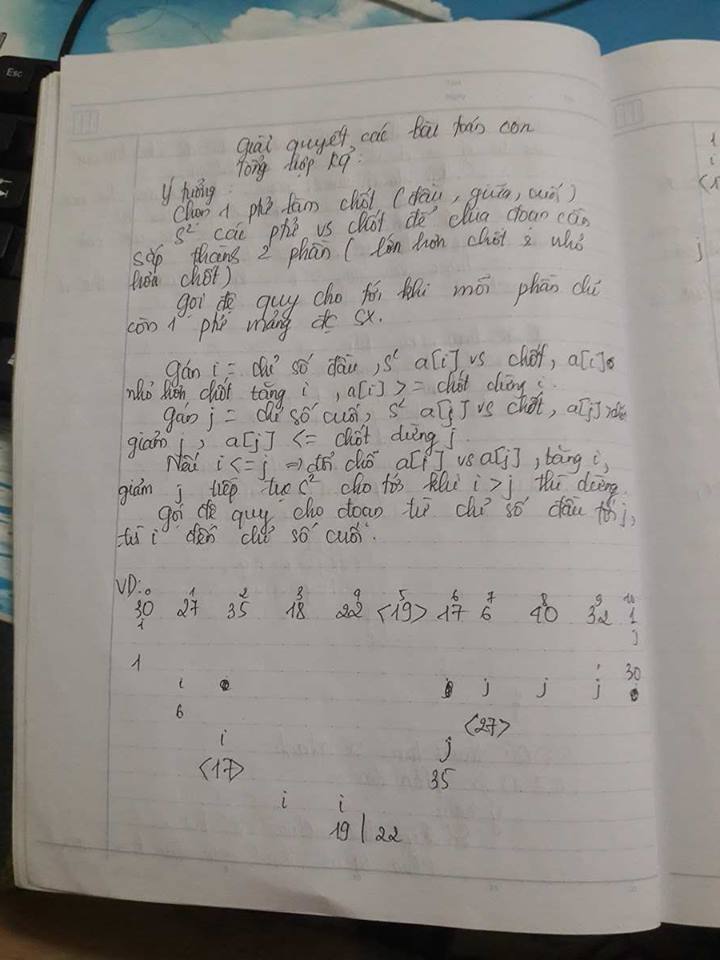 Giải quyết các bài toán con
tổng hợp kq.
Ý tưởng:
Chọn 1 ptử làm chốt (đầu, giữa, cuối)
s² các ptử vs chốt để chia đoạn cần
sắp thành 2 phần (lớn hơn chốt & nhỏ
hơn chốt)
gọi đệ quy cho tới khi mỗi phần chỉ
còn 1 ptử mảng đc sx.
Gán i = chỉ số đầu, s² a[i] vs chốt, a[i]
nhỏ hơn chốt tăng i, a[i] >= chốt dừng i.
Gán j = chỉ số cuối, s² a[j] vs chốt, a[j] >
giảm j, a[j] <= chốt dừng j.
Nếu i <= j => đổi chỗ a[i] vs a[j], tăng i,
giảm j tiếp tục s² cho tới khi i > j thì dừng.
gọi đệ quy cho đoạn từ chỉ số đầu tới j,
từ i đến chỉ số cuối.
VD: 0 1 2 3 4 5 6 7 8 9 10
30 27 35 18 22 <19> 17 6 40 32 1
i j
1 30
i j j j
6 <27>
i j
<17> 35
i i
19 | 22
1
i
<1
j
Esc